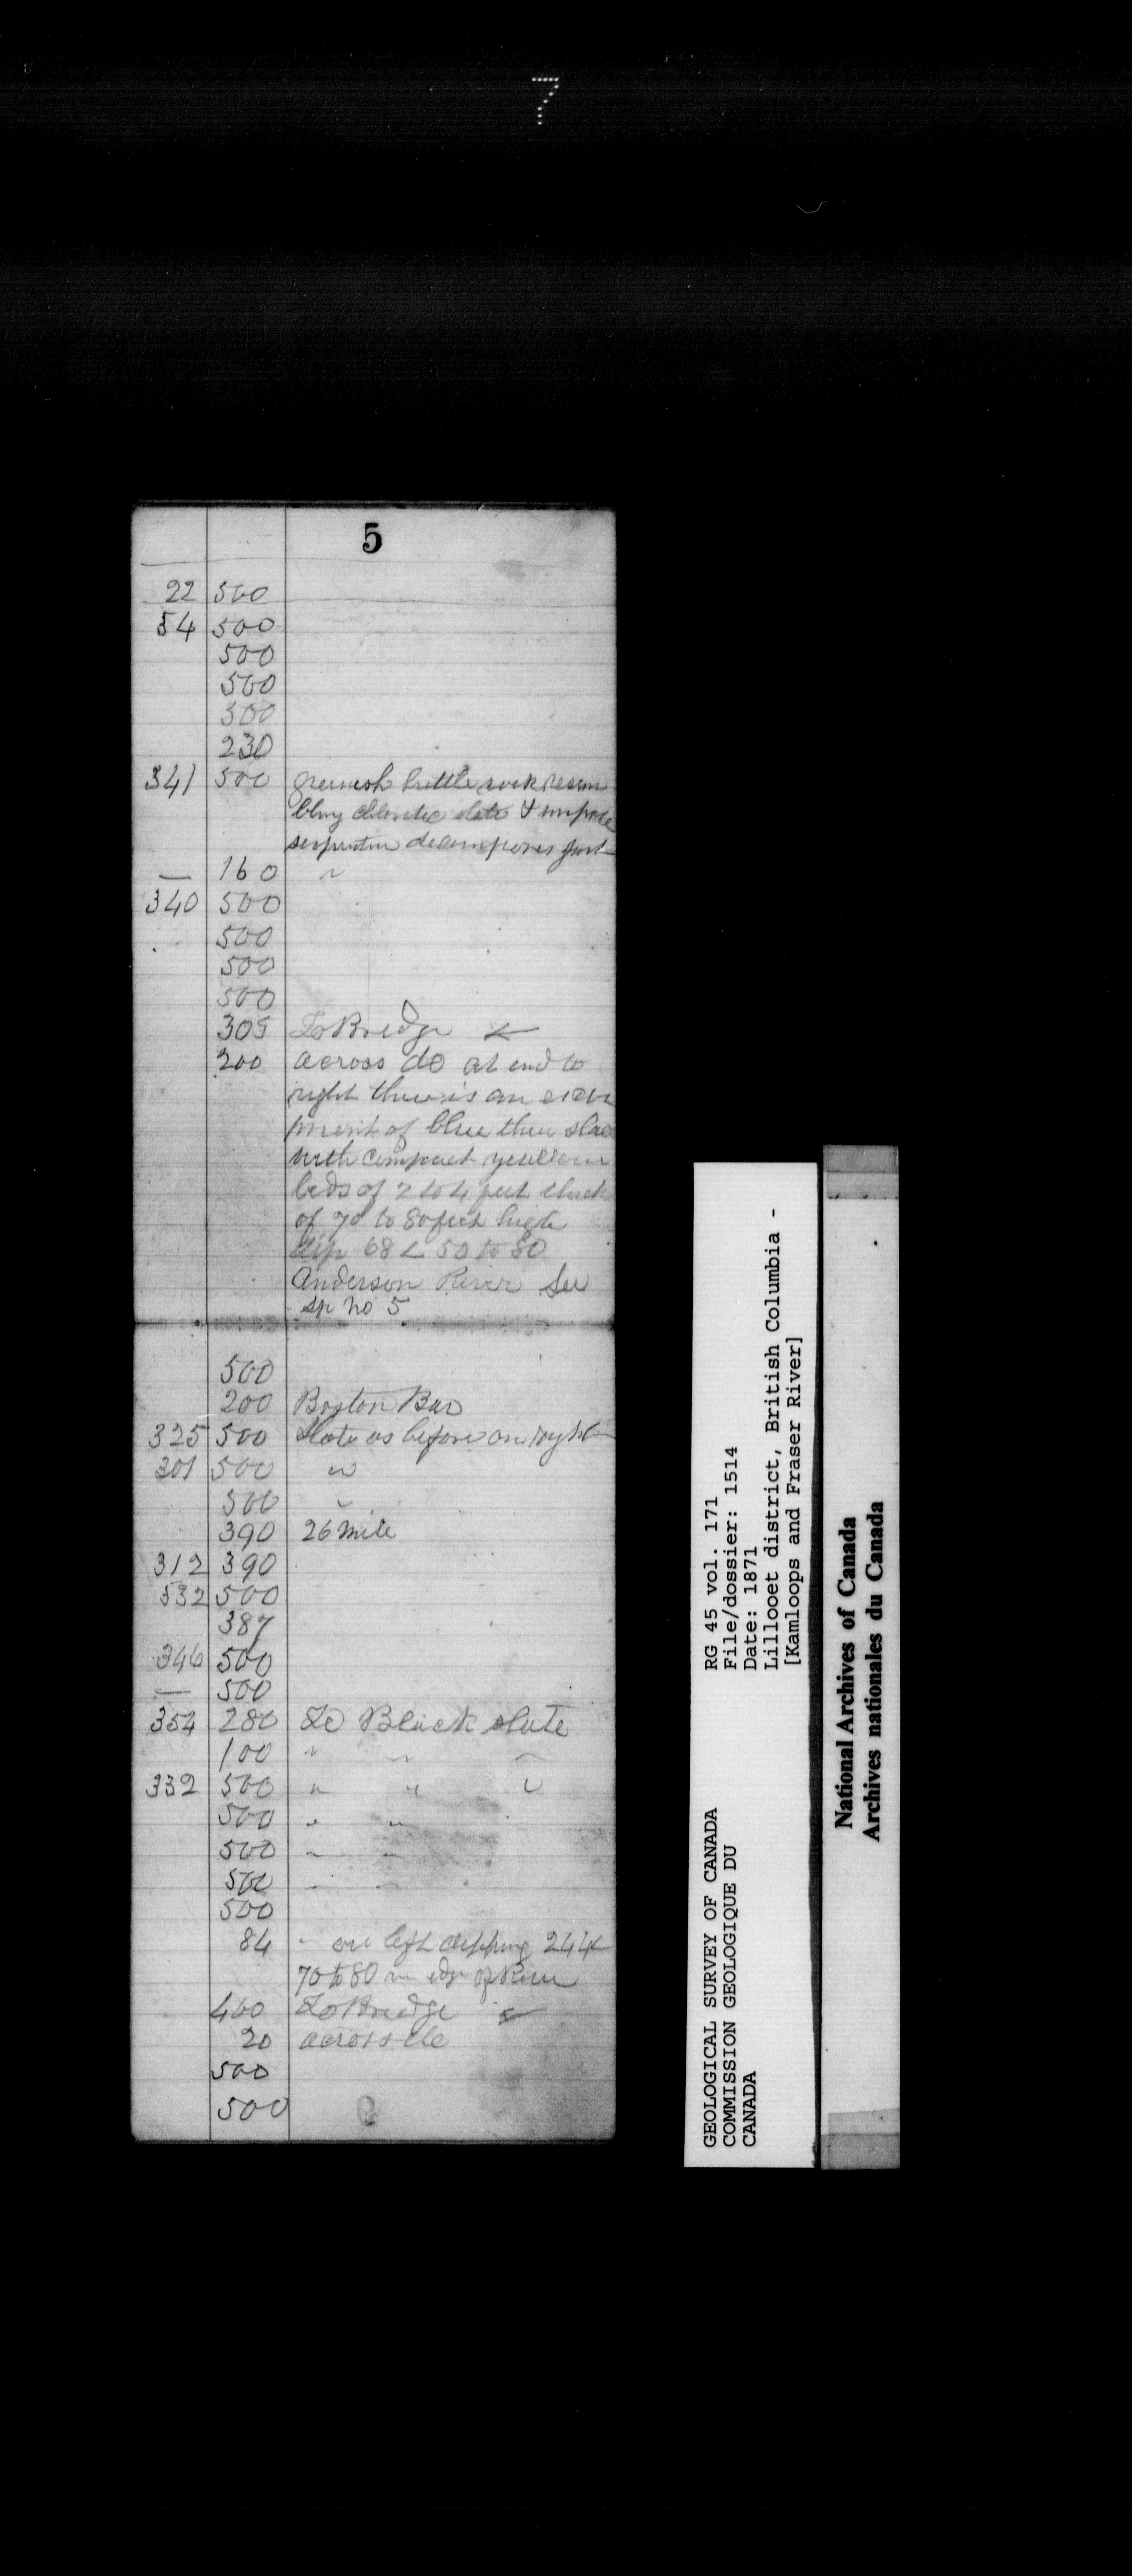 7
5
22 500
54 500
500
500
500
230
341 500 greenish brittle rock resem
bling chloritic slate & impure
serpentine decomposes fast
— 160 "
340 500
500
500
500
305 To Bridge
200 across do at end to
right there is an escar
pment of blue thin slate
with compact yellow
beds of 2 to 4 feet thick
of 70 to 80 feet high
dip 68 < 50 to 80
Anderson River See
sp no 5
500
200 Boston Bar
325 500 slate as before on right
301 500 "
500 "
390 26 mile
312 390
332 500
387
346 500
— 500
354 280 To Black slate
100 " " "
332 500 " " "
500 " "
500 " "
500 " "
500
84 " on left dipping 244<
70 to 80 edge of River
460 To Bridge
20 across do
500
500
GEOLOGICAL SURVEY OF CANADA RG 45 vol. 171
COMMISSION GEOLOGIQUE DU File/dossier: 1514
CANADA Date: 1871
Lillooet district, British Columbia -
[Kamloops and Fraser River]
National Archives of Canada
Archives nationales du Canada